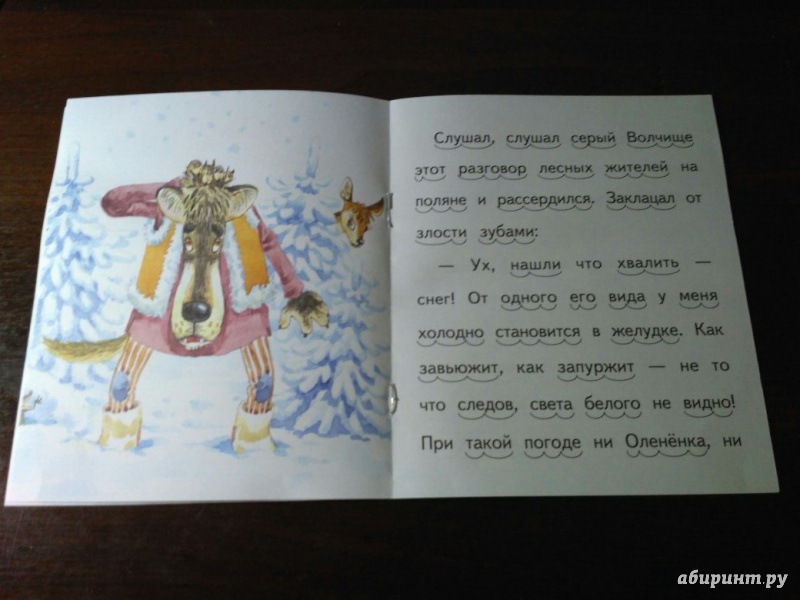 Слушал, слушал серый Волчище
этот разговор лесных жителей на
поляне и рассердился. Заклацал от
злости зубами:
— Ух, нашли что хвалить —
снег! От одного его вида у меня
холодно становится в желудке. Как
завьюжит, как запуржит — не то
что следов, света белого не видно!
При такой погоде ни Оленёнка, ни
абиринт.ру